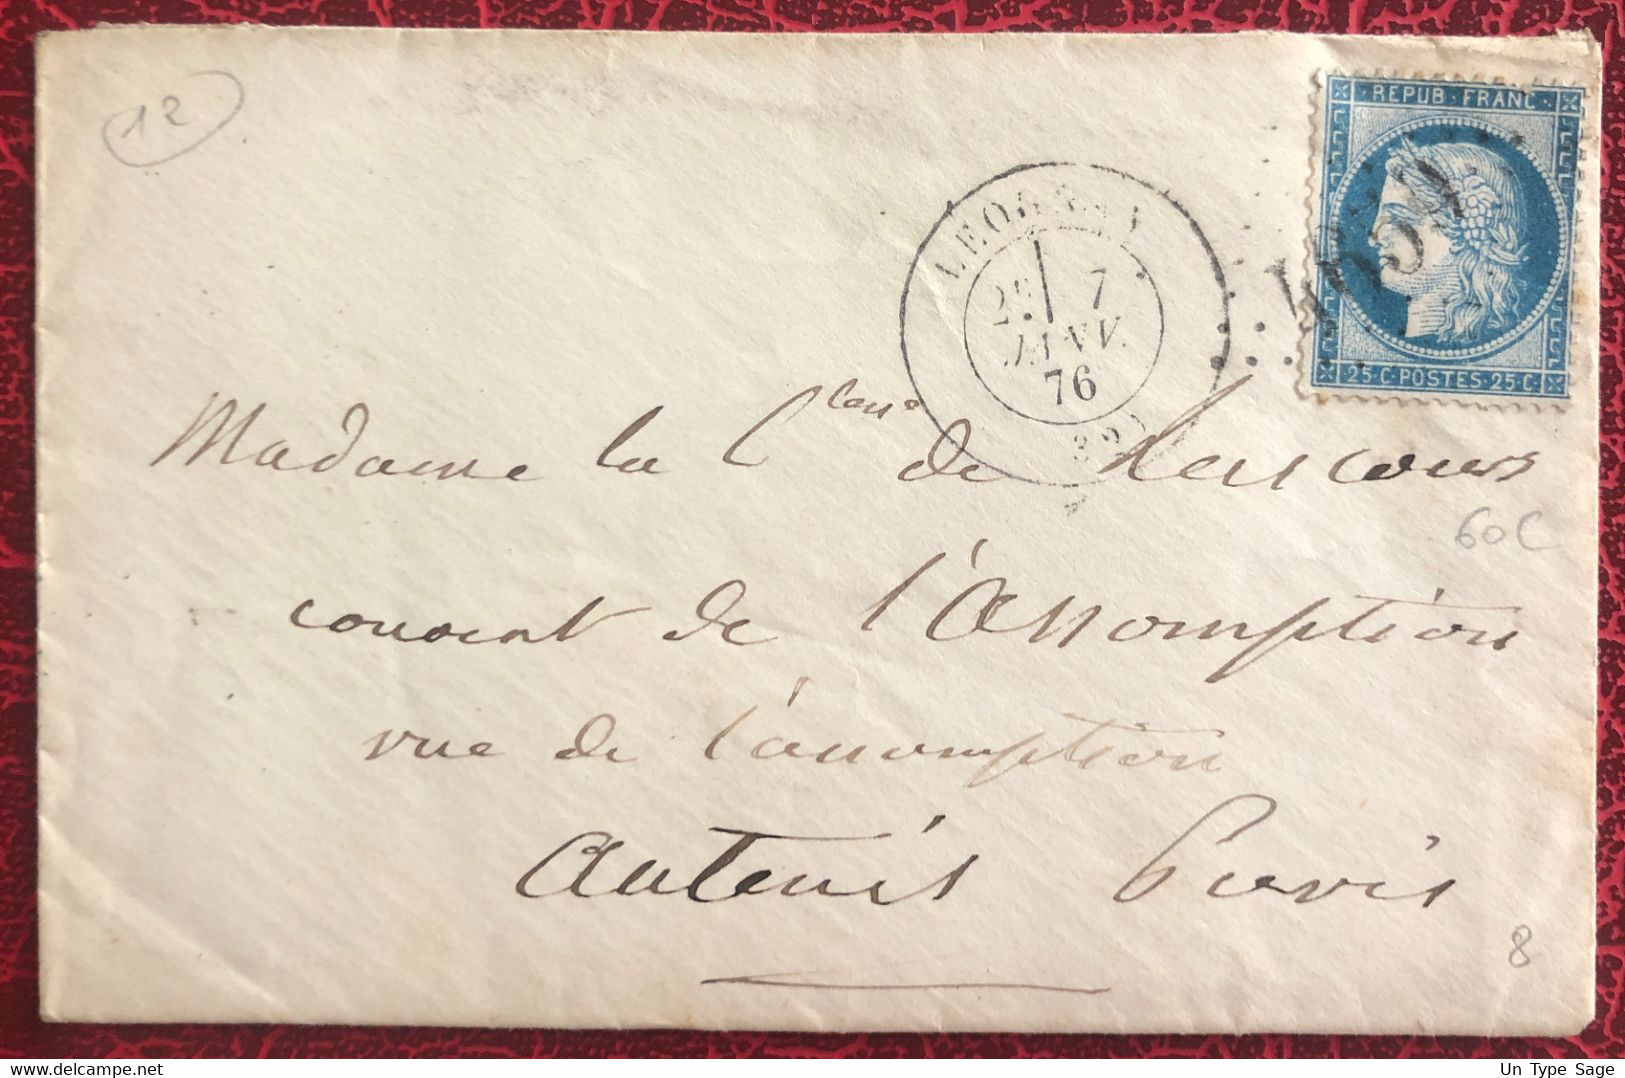 12
REPUB · FRANC
25 · C POSTES 25 · C
7
JANV.
76
Madame la C^tesse de
60c
couvent de l'Assomption
rue de l'assomption
Auteuil Paris
8
Un Type Sage